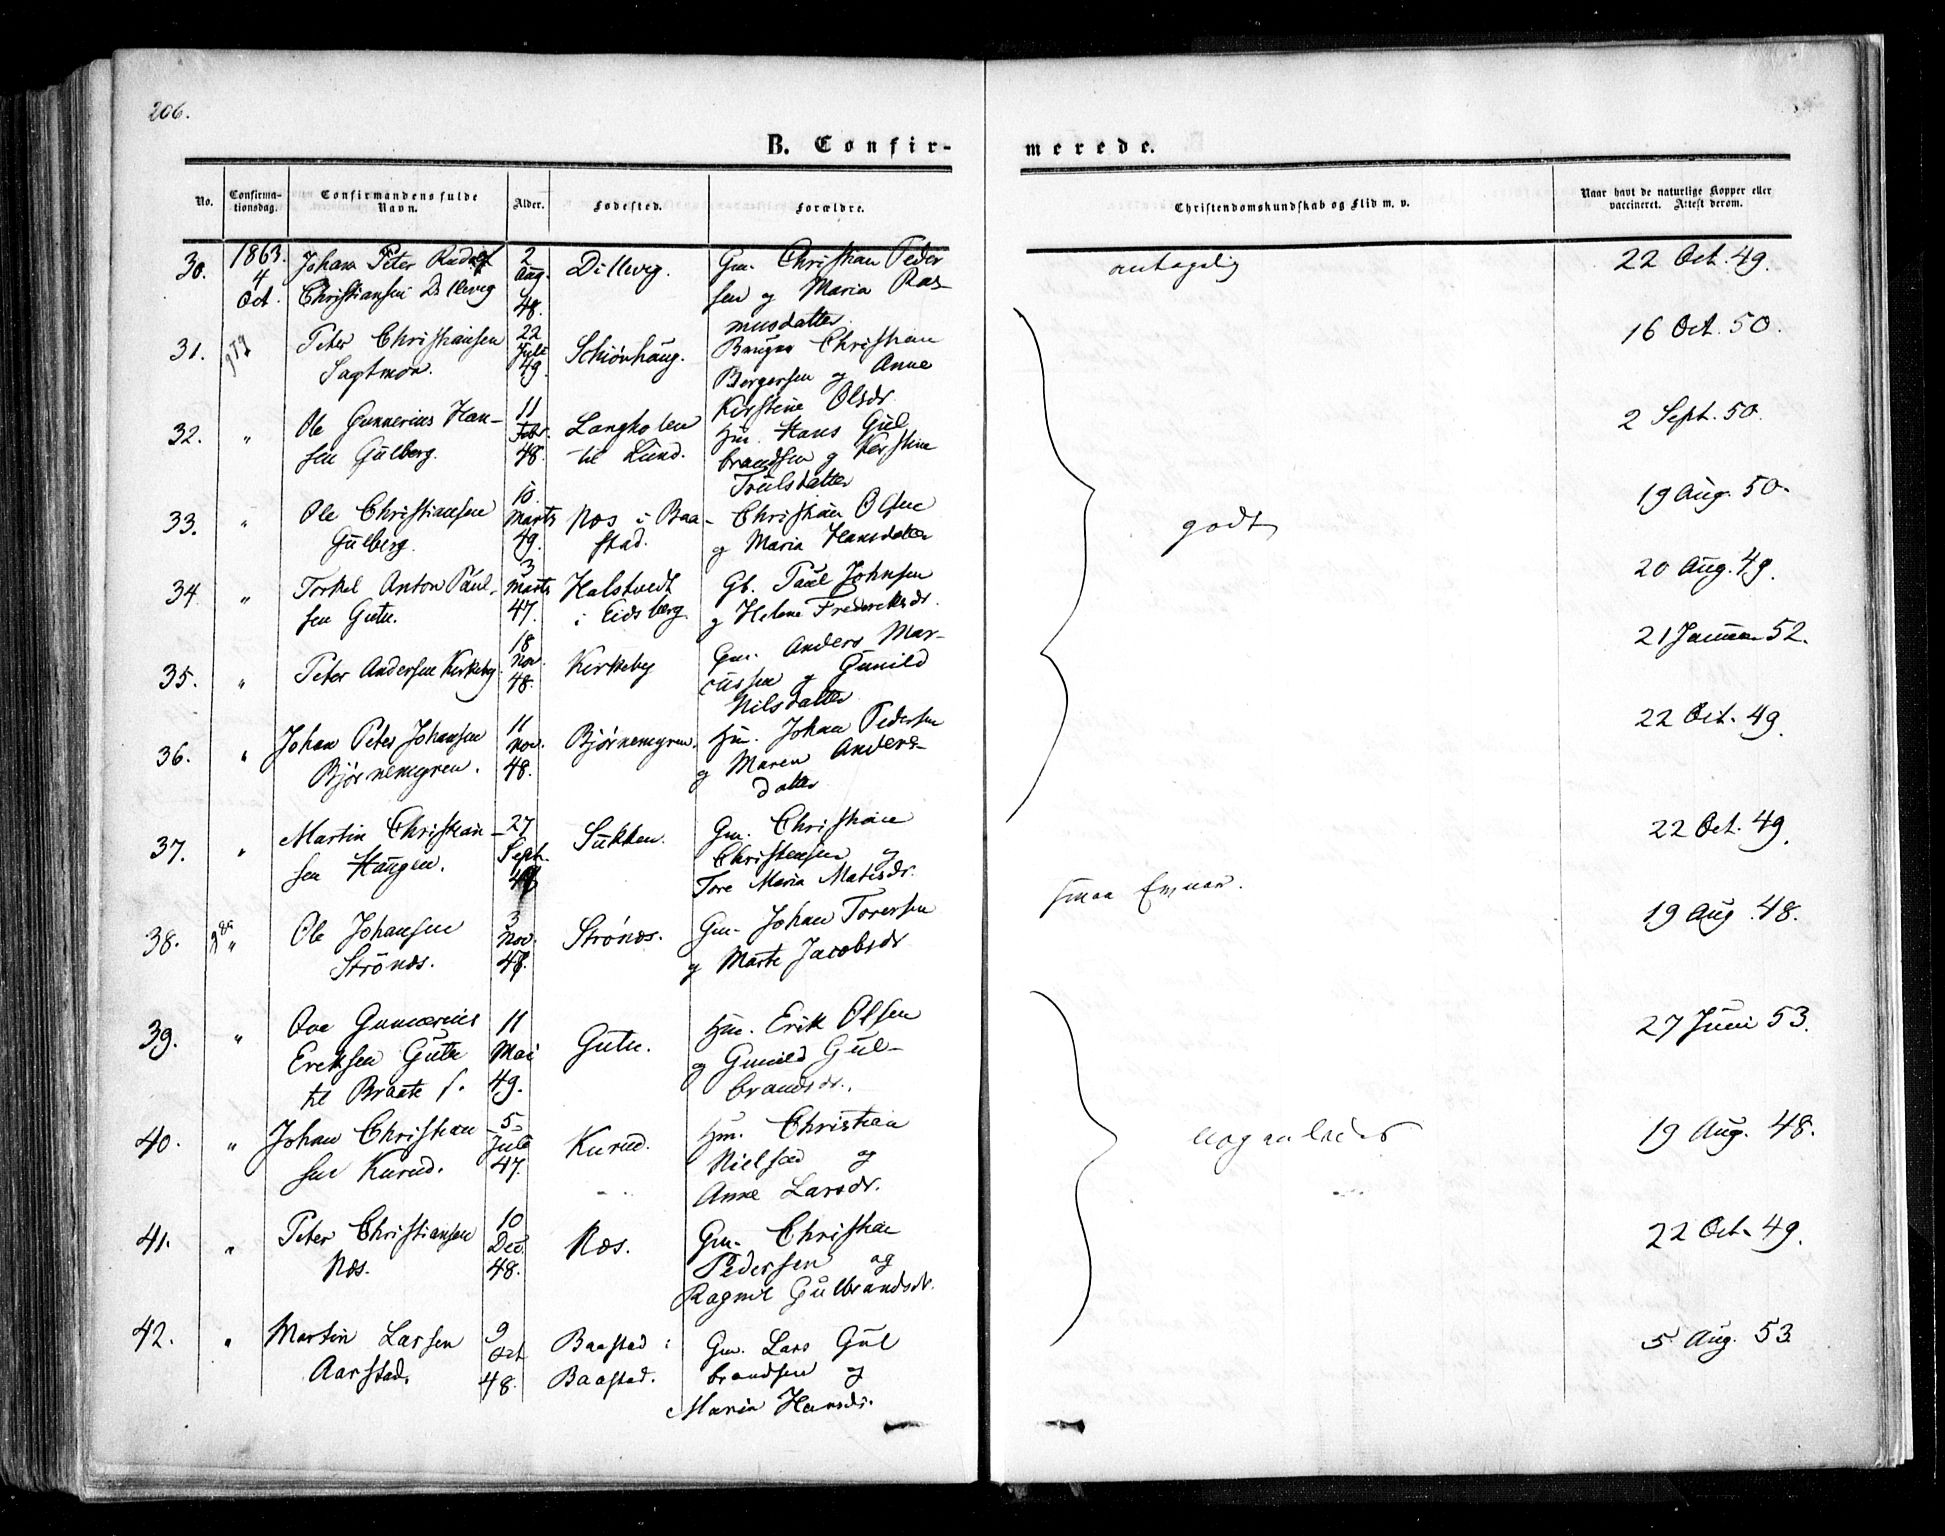 206.
B. Confir-
merede.
No.
Confirma-
tionsdag.
Confirmandens fulde
Navn.
Alder.
Fødested.
Forældre.
Christendomskundskab og Flid m. v.
Naar havt de naturlige Kopper eller
vaccineret. Attest derom.
30. 1863. 4 Oct. Johan Peter Rudolf 2 Aug. 48. Dillevig. Gm. Christian Peder antagelig 22 Oct. 49.
Christiansen Dillevig sen og Maria Ras-
musdatter.
31. Peter Christiansen 22 Juli 49. Schiønhaug. Christian 16 Oct. 50.
Sagtmon. Borgersen og Anne
Kirstine Olsdr
32. " Ole Gunnerius Han- 11 Febr. 48. Langholen Hm. Hans Gul 2 Sept. 50.
sen Gulberg. til Lund. brandsen og Kerstine
Trulsdatter
33. " Ole Christiansen 10 Marts 49. Næs i Baa- Christian Olsen godt 19 Aug. 50.
Gulberg. stad. og Maria Hansdatter
34. " Torkel Anton Paul- 3 Marts 47. Halstvedt Gb. Paul Johnsen 20 Aug. 49.
sen Gutu. i Eidsberg og Helene Frederiksdr.
35. " Peter Andersen Kirkeby 18 Nov. 48. Kirkeby Gm. Anders Mar- 21 Januar 52.
cussen og Gunild
Nilsdatter
36. " Johan Peter Johansen 11 Nov. 48. Bjørnemyren. Hm. Johan Pedersen 22 Oct. 49.
Bjørnemyren. og Maren Anders-
datter
37. " Martin Christian- 27 Sept. Sukken. Gm. Christian 22 Oct. 49.
sen Haugen. Christensen og
Tore Maria Matisdr.
smaa Evner.
38. " Ole Johansen 3 Nov. 47. Strønæs. Gm. Johan Toresen 19 Aug. 48.
Strönæs. og Marte Jacobsdr
39. " Ove Gunnerius 11 Mai 49. Gutu. Hm. Erik Olsen 27 Juni 53.
Ereksen Gutu og Gunild Gul-
til Braate f. brandsdr.
40. " Johan Christian 5 Juli 47. Kurud. Hm. Christian nogenledes 19 Aug. 48.
sen Kurud. Nielsen og
Anne Larsdr.
41. " Peter Christiansen 10 Dec. 48. Næs. Gm. Christian 22 Oct. 49.
Næs. Pedersen og
Ragnil Gulbrandsdr.
42. " Martin Larsen 9 Oct 48. Baastad i Gm. Lars Gul 5 Aug. 53.
Aarstad. Baastad. brandsen og
Maria Hansdr.